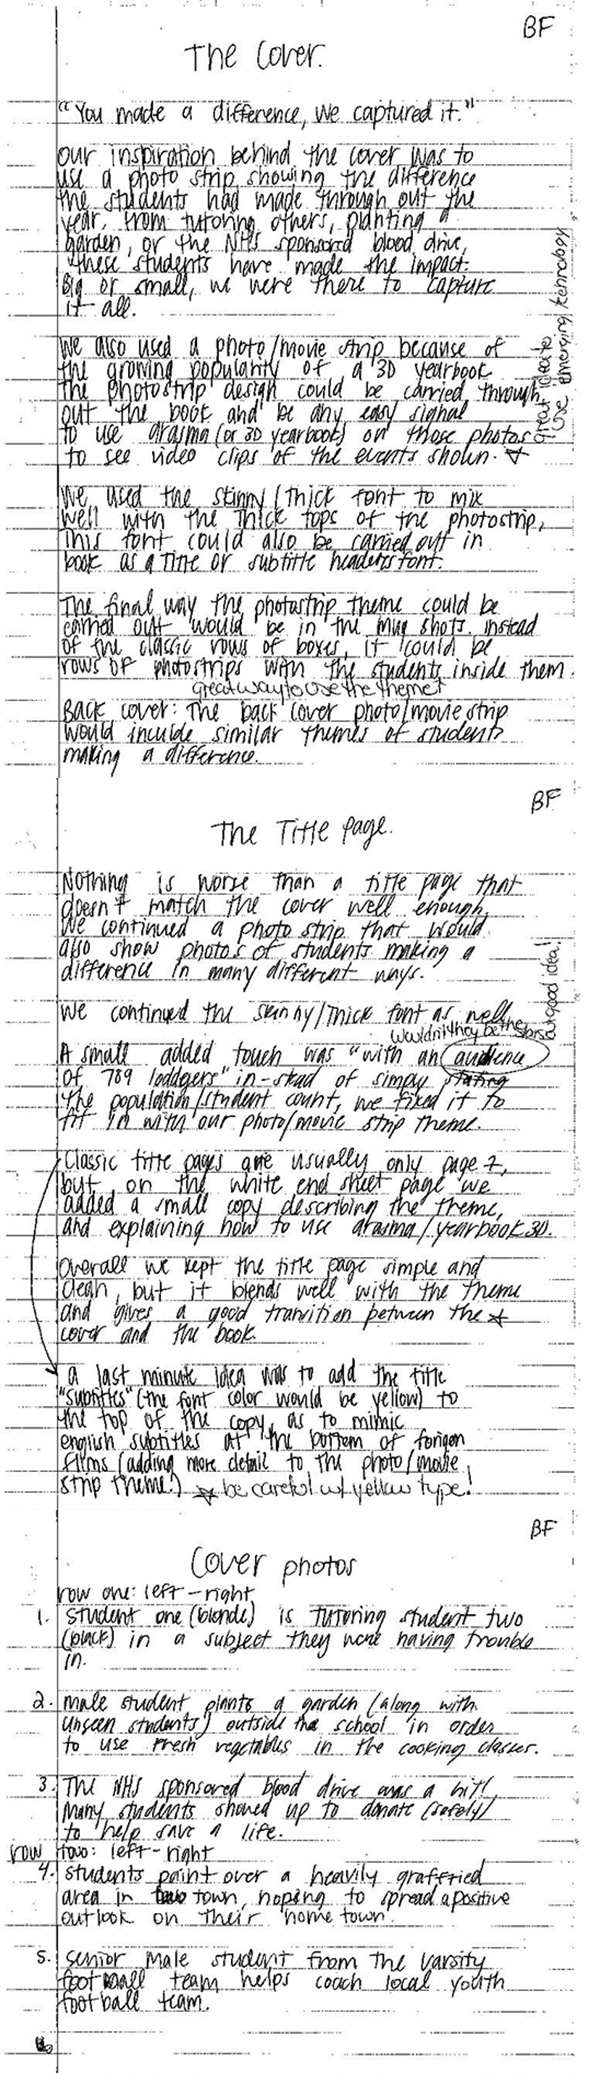 BF
The Cover.
"You made a difference, we captured it."
Our inspiration behind the cover was to
use a photo strip showing the difference
the students had made through out the
year, from tutoring others, planting a
garden, or the NHS sponsored blood drive,
these students have made the impact.
Big or small, we were there to capture
it all.
We also used a photo/movie strip because of
the growing popularity of a 3D yearbook
the photostrip design could be carried through
out the book and be any easy signal
to use arasma (or 3D yearbook) on those photos
to see video clips of the events shown.
great idea to
use emerging technology
We used the skinny/thick font to mix
well with the thick tops of the photostrip,
this font could also be carried out in
book as a title or subtitle headers font.
The final way the photostrip theme could be
carried out would be in the mug shots. instead
of the classic rows of boxes, it could be
rows of photostrips with the students inside them.
great way to use the theme!
Back cover: The back cover photo/movie strip
would inculde similar themes of students
making a difference.
BF
The Title Page.
Nothing is worse than a title page that
doesn't match the cover well enough,
We continued a photo strip that would
also show photo's of students making a
difference in many different ways.
We continued the skinny/thick font as well.
wouldn't they be the stars
but good idea!
A small added touch was "with an audience
of 789 loddgers" in-stead of simply stating
the population/student count, we fixed it to
fit in with our photo/movie strip theme.
Classic title pages are usually only page 1,
but on the white end sheet page we
added a small copy describing the theme,
and explaining how to use arasma/yearbook 3D.
Overall we kept the title page simple and
clean, but it blends well with the theme
and gives a good tranvition between the
cover and the book.
a last minute idea was to add the title
"subtitles" (the font color would be yellow) to
the top of the copy, as to mimic
english subtitles at the bottom of forigen
films (adding more detail to the photo/movie
strip theme.) be careful w/ yellow type!
BF
Cover photos
row one: left-right
1. Student one (blonde) is tutoring student two
(black) in a subject they were having trouble
in.
2. male student plants a garden (along with
unseen students) outside the school in order
to use fresh vegetables in the cooking classes.
3. The NHS sponsored blood drive was a hit!
Many students showed up to donate (safely)
to help save a life.
row two: left-right
4. students paint over a heavily graffried
area in town, hoping to spread a positive
outlook on their home town.
5. senior male student from the varsity
football team helps coach local youth
football team.